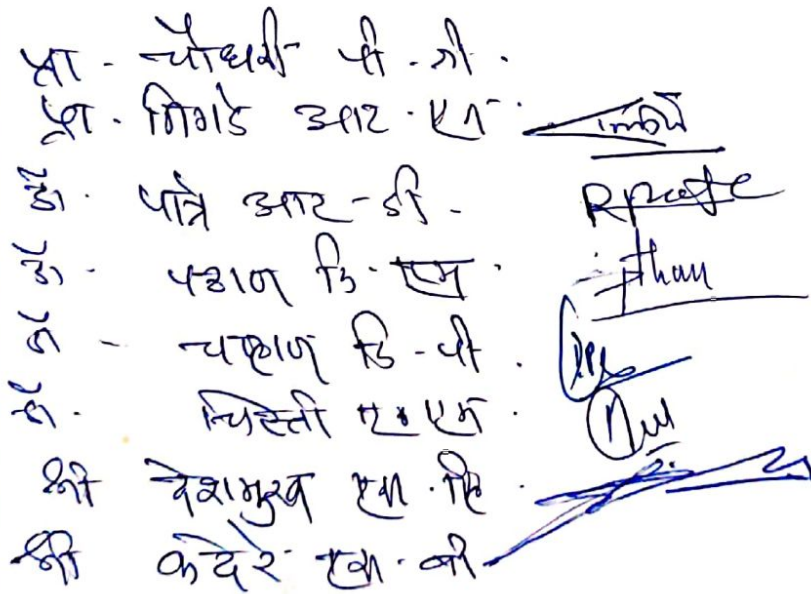 प्रा - चौधरी पी. जी.
प्रा. गिगडे आर. एन.
डॉ. पात्रे आर - डी -
डॉ. पठाण जि. एम.
डॉ - चव्हाण डि - पी.
डॉ. चिस्ती ए. एम.
श्री देशमुख एम. जि.
श्री कदेरे एम. बी